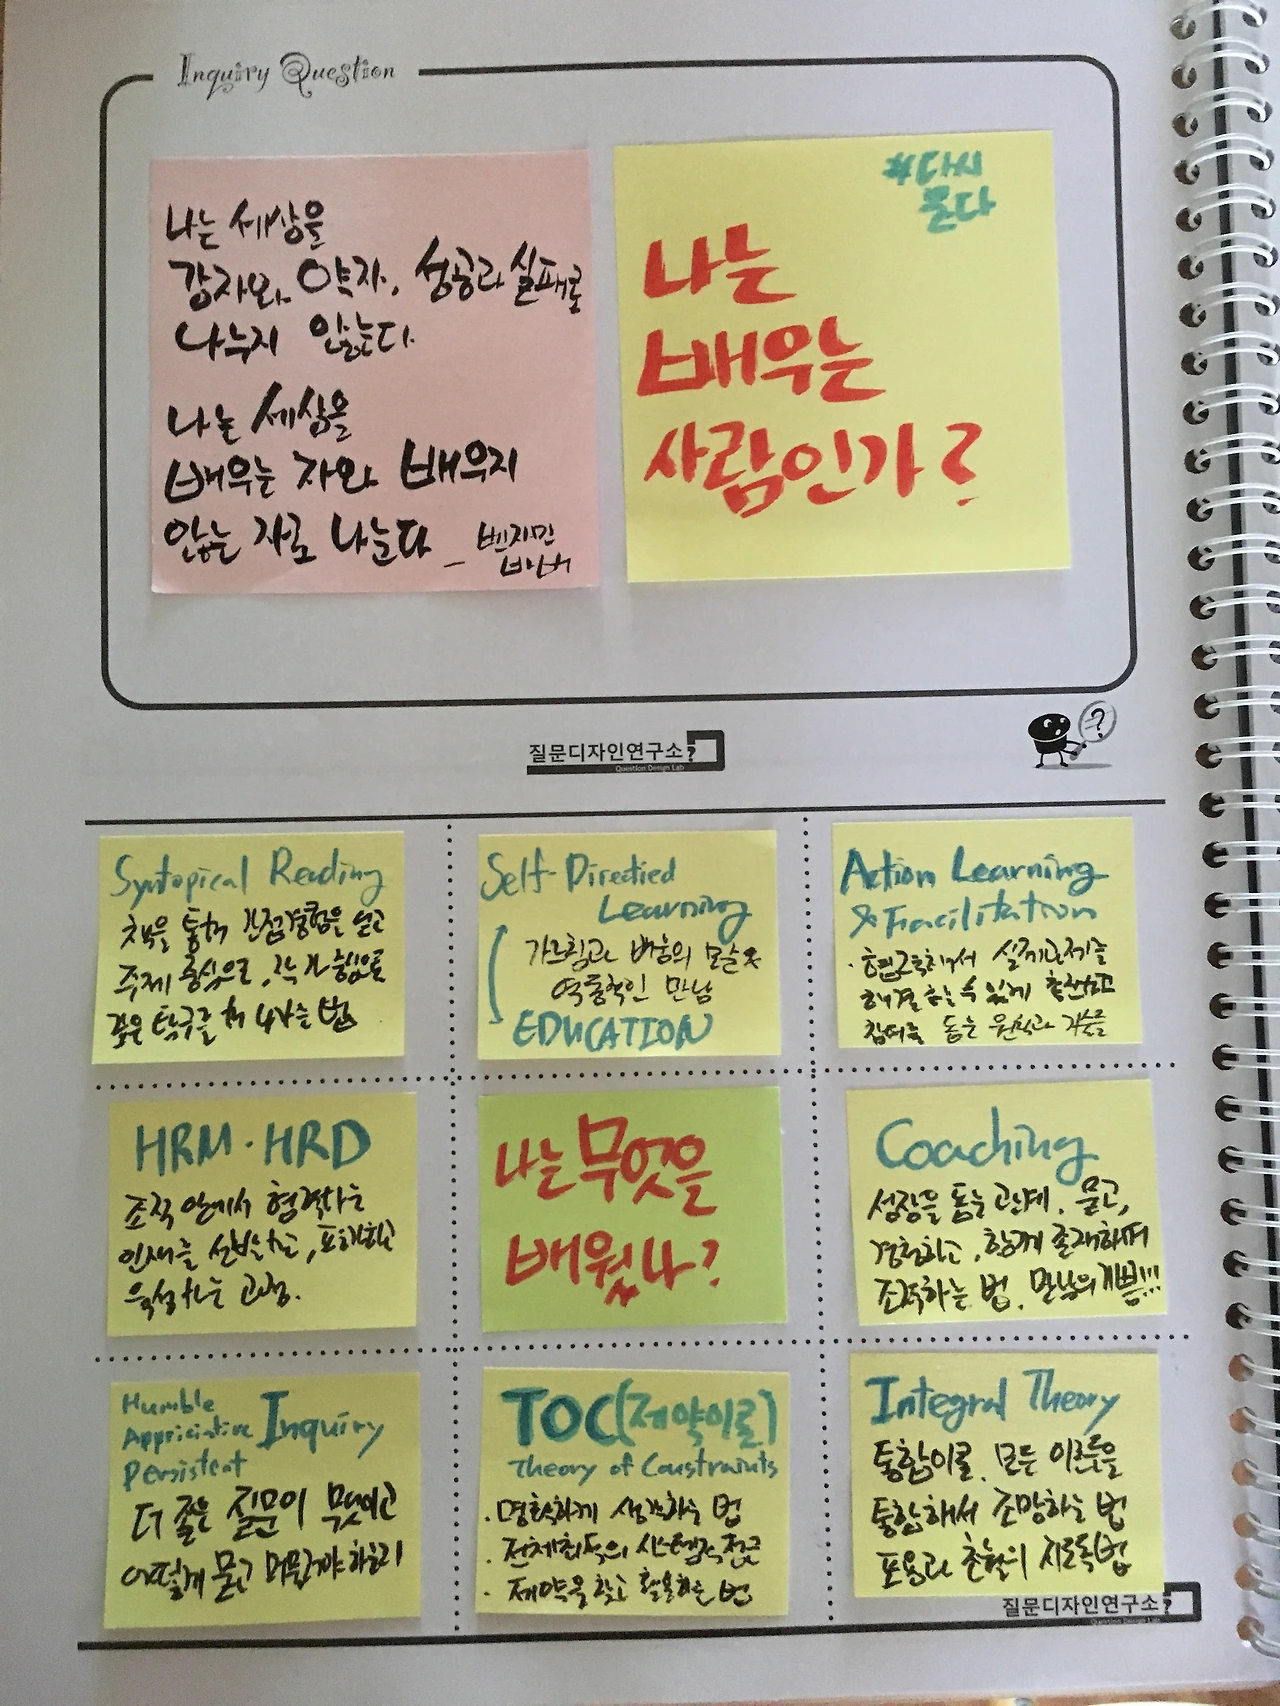 Inquiry Question
나는 세상을
강자와 약자, 성공과 실패로
나누지 않는다.
나는 세상을
배우는 자와 배우지
않는 자로 나눈다 - 벤자민
바버
#다시
묻다
나는
배우는
사람인가?
질문디자인연구소?
Question Design Lab
?
Syntopical Reading
책을 통해 간접경험을 얻고
주제 중심으로,
깊은 탐구를 해 나가는 법
Self-Directied
Learning
가르침과 배움의 모습
역동적인 만남
EDUCATION
Action Learning
& Facilitation
· 실제문제를
해결하는
참여를 돕는 원칙과 기술들
HRM·HRD
조직 안에서 협력하는
인재를 선발하고,
육성하는 과정.
나는 무엇을
배웠나?
Coaching
성장을 돕는 관계. 묻고,
경청하고, 함께 존재하며
조력하는 법. 만남의 기쁨!!!
Humble
Appriciative Inquiry
Persistent
더 좋은 질문이 무엇이고
어떻게 묻고
TOC(제약이론)
Theory of Constraints
· 명확하게 생각하는 법
· 전체최적의 시스템적 접근
· 제약을 찾고 활용하는 법
Integral Theory
통합이론. 모든 이론들을
통합해서 조망하는 법
포용과 초월의 지도독법
질문디자인연구소?
Question Design Lab